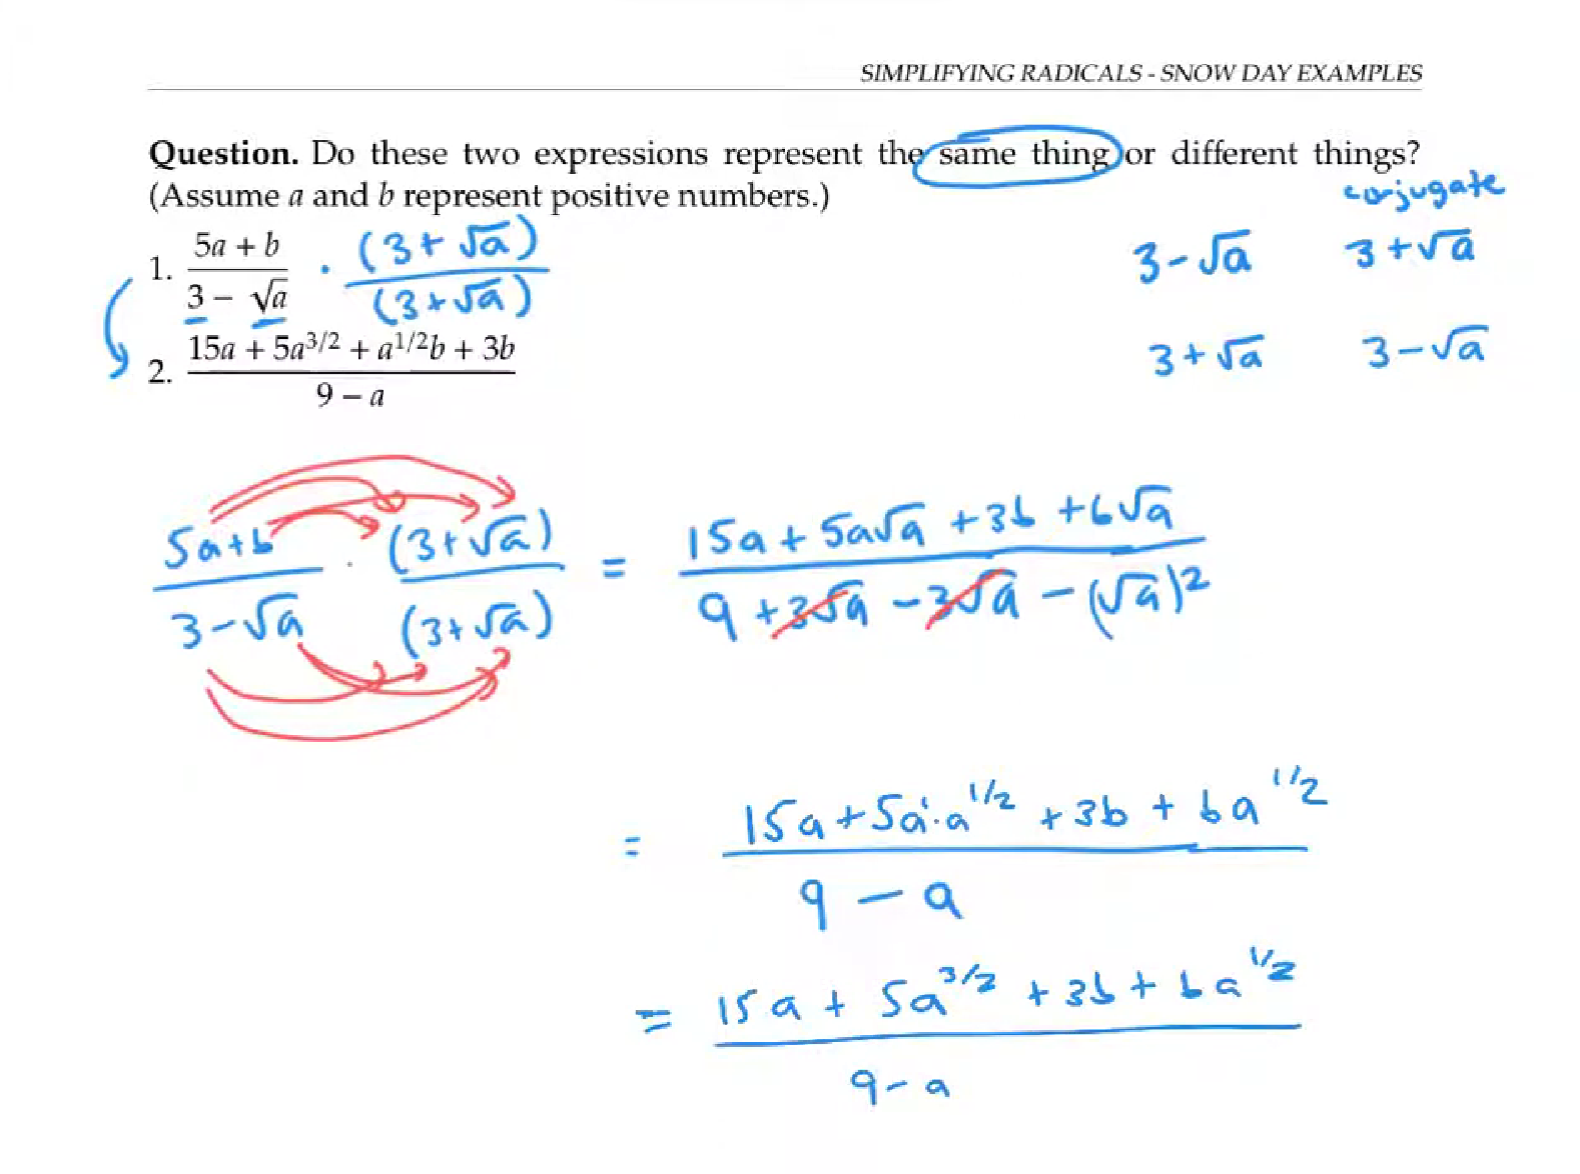 SIMPLIFYING RADICALS - SNOW DAY EXAMPLES
Question. Do these two expressions represent the same thing or different things?
(Assume a and b represent positive numbers.)
conjugate
1. (5a + b)/(3 − √a) · (3 + √a)/(3 + √a)
3 − √a   3 + √a
2. (15a + 5a^{3/2} + a^{1/2}b + 3b)/(9 − a)
3 + √a   3 − √a
(5a + b)/(3 − √a) · (3 + √a)/(3 + √a) = (15a + 5a√a + 3b + b√a)/(9 + 3√a − 3√a − (√a)^2)
= (15a + 5a^1 · a^{1/2} + 3b + ba^{1/2})/(9 − a)
= (15a + 5a^{3/2} + 3b + ba^{1/2})/(9 − a)